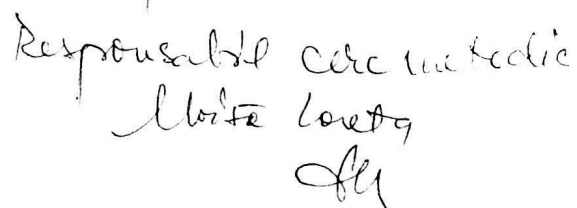 Responsabil cerc metodic
Moisă Loreta